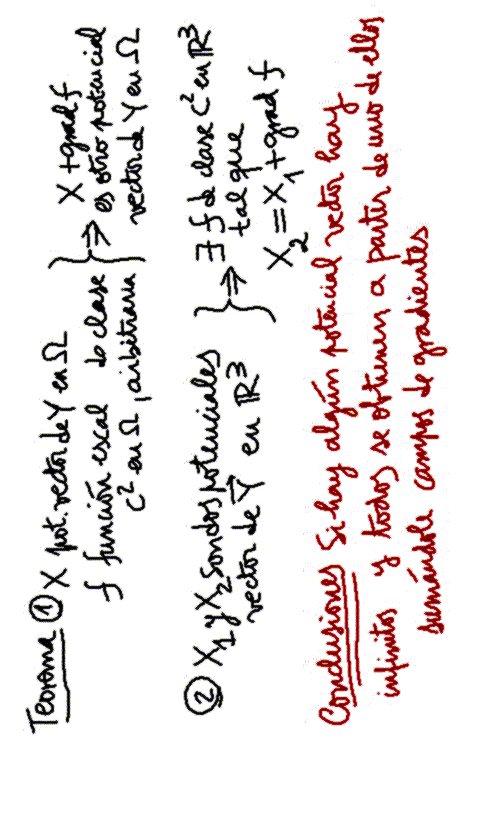 Teorema ① X pot. vector de Y en Ω } ⇒ X + grad f
f función escal de clase } es otro potencial
C² en Ω, arbitraria } vector de Y en Ω
② X₁ y X₂ son dos potenciales } ⇒ ∃ f de clase C² en ℝ³
vector de Y⃗ en ℝ³ } tal que
X₂ = X₁ + grad f
Conclusiones Si hay algún potencial vector hay
infinitos y todos se obtienen a partir de uno de ellos
sumándole campos de gradientes